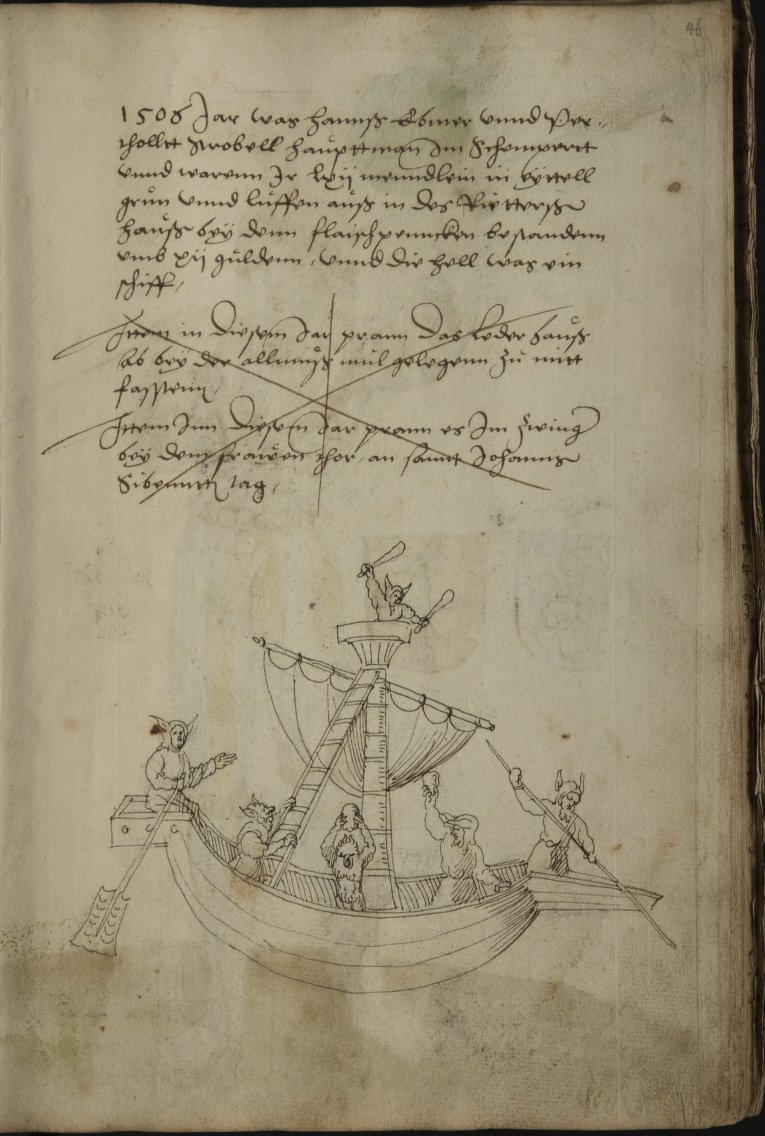 46
1506 Jar was hannß Ebner vnnd Per-
thollt Strobell haupttman Im Schempertt
vnnd warenn Ir lxij mendlein in eyttell
grun vnnd luffen auß in des Rietterß
hauß bey denn flaischpenncken bestandenn
vmb xij guldenn, vnnd die hell was ein
schiff,
Ittem in diesem Jar prann das leder hauß
ab bey der allmuß mul gelegenn zu mitt
fasstenn,
Ittem Inn diesem Jar prann es Im zwing
bey dem frawen thor, an sannt Johanns
Sibenntt tag,